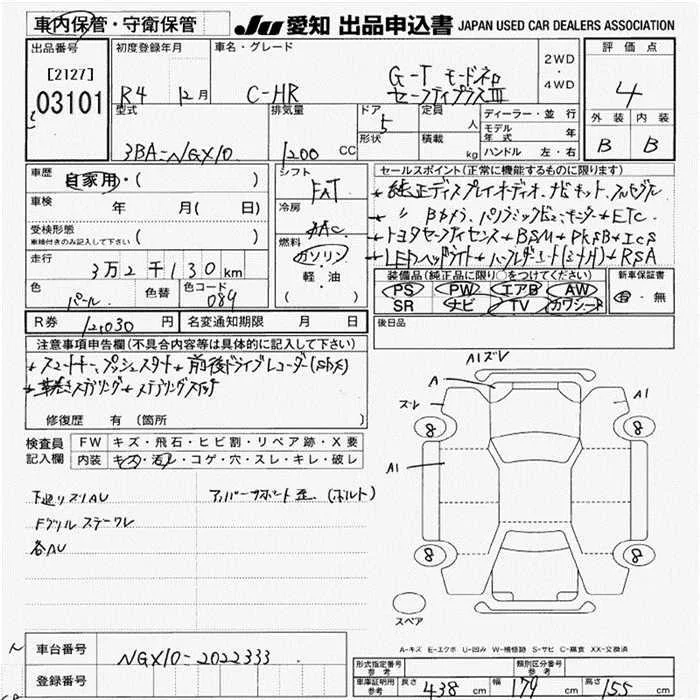 車内保管・守衛保管
JU 愛知 出品申込書 JAPAN USED CAR DEALERS ASSOCIATION
出品番号
[2127]
03101
初度登録年月
R4 12月
車名・グレード
C-HR
G-T モードネロ
セーフティプラスIII
2WD
4WD
評価点
4
外装 内装
B B
型式
3BA-NGX10
排気量
1200 CC
ドア
5
形状
定員
人
積載
kg
ディーラー・並行
モデル年式 年
ハンドル 左・右
車歴
自家用・( )
車検 年 月( 日)
受検形態
車検付きのみ記入して下さい ( )
走行
3万2千130km
色
パール
色替
色コード
089
シフト
FAT
冷房
AAC
燃料
ガソリン
軽・油
( )
セールスポイント(正常に機能するものに限ります)
+純正ディスプレイオーディオ・ナビキット・フルセグル
+ 〃 Bカメラ・パノラミックビューモニター+ETC
+トヨタセーフティセンス+BSM+PKSB+ICS
+LEDヘッドライト+ +RSA
装備品(純正品に限り○をつけてください)
PS PW エアB AW
SR ナビ TV カワシート
新車保証書
有・無
R券 12,030 円
名変通知期限 月 日
後日品
注意事項申告欄(不具合内容等は具体的に記入して下さい)
+スマートキー、プッシュスタート+前後ドライブレコーダー
+革巻きステアリング+ステアリングスイッチ
修復歴 有 (箇所 )
検査員記入欄
FW キズ・飛石・ヒビ割・リペア跡・X要
内装 キズ・汚レ・コゲ・穴・スレ・キレ・破レ
下廻りスリAU
アッパーサポート歪(ボルト)
Fグリル ステーワレ
各AU
A1ズレ
A
ズレ
A1
8
8
A1
8
8
スペア
A-キズ E-エクボ U-凹み W-補修跡 S-サビ C-腐食 XX-交換済
車台番号
NGX10-2022333
登録番号
形式指定番号 参考
類別区分番号 参考
車庫証明用 参考
長さ 438 cm 幅 179 cm 高さ 155 cm